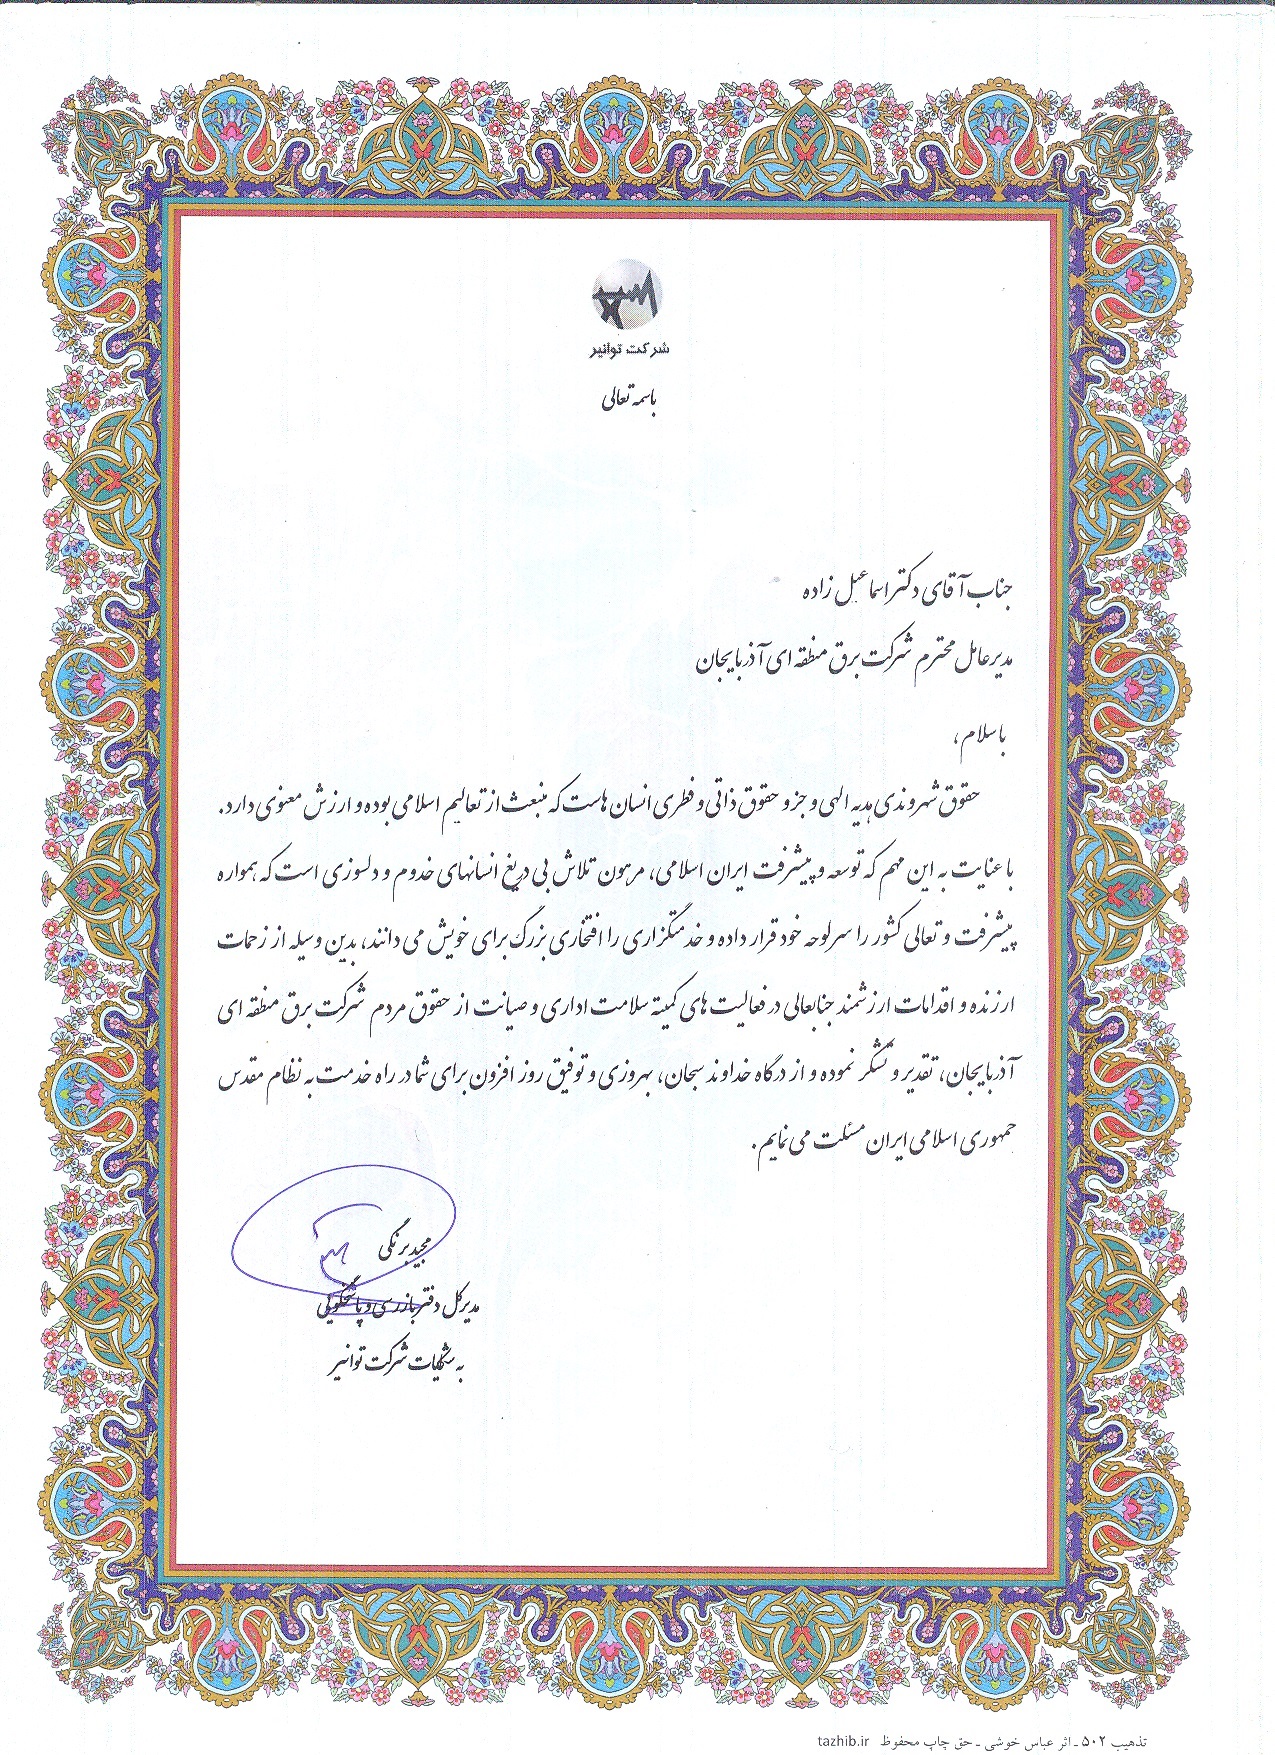 شرکت توانیر
باسمه تعالی
جناب آقای دکتر اسماعیل زاده
مدیرعامل محترم شرکت برق منطقه ای آذربایجان
باسلام،
حقوق شهروندی هدیه الهی و جزو حقوق ذاتی و فطری انسان هاست که منبعث از تعالیم اسلامی بوده و ارزش معنوی دارد.
با عنایت به این مهم که توسعه و پیشرفت ایران اسلامی، مرهون تلاش بی دریغ انسانهای خدوم و دلسوزی است که همواره
پیشرفت و تعالی کشور را سرلوحه خود قرار داده و خدمتگزاری را افتخاری بزرگ برای خویش می دانند، بدین وسیله از زحمات
ارزنده و اقدامات ارزشمند جنابعالی در فعالیت های کمیته سلامت اداری و صیانت از حقوق مردم شرکت برق منطقه ای
آذربایجان، تقدیر و تشکر نموده و از درگاه خداوند سبحان، بهروزی و توفیق روز افزون برای شما در راه خدمت به نظام مقدس
جمهوری اسلامی ایران مسئلت می نمایم.
مجید برنگی
مدیرکل دفتر بازرسی و پاسخگویی
به شکایات شرکت توانیر
تذهیب ۵۰۲ ـ اثر عباس خوشی ـ حق چاپ محفوظ tazhib.ir